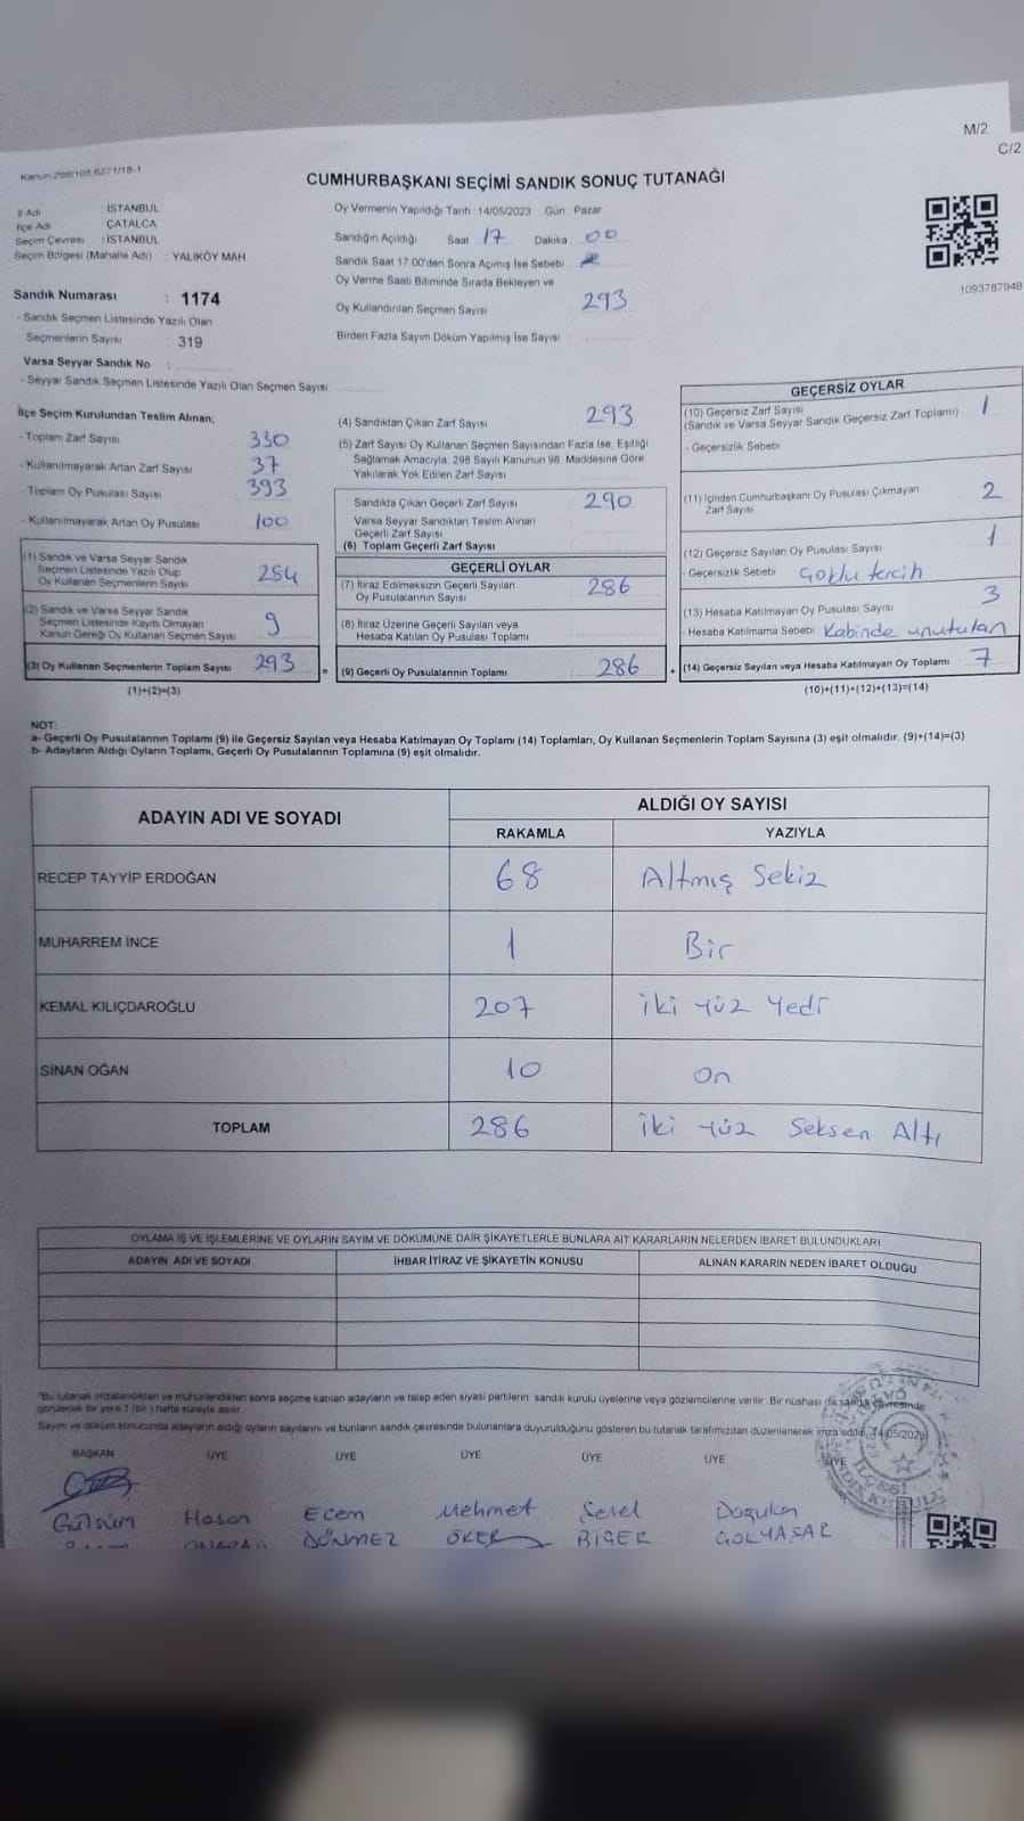 M/2
C/2
CUMHURBAŞKANI SEÇİMİ SANDIK SONUÇ TUTANAĞI
İl Adı : İSTANBUL
İlçe Adı : ÇATALCA
Seçim Çevresi : İSTANBUL
Seçim Bölgesi (Mahalle Adı) : YALIKÖY MAH.
Sandık Numarası : 1174
- Sandık Seçmen Listesinde Yazılı Olan
Seçmenlerin Sayısı : 319
Varsa Seyyar Sandık No :
- Seyyar Sandık Seçmen Listesinde Yazılı Olan Seçmen Sayısı
Oy Vermenin Yapıldığı Tarih : 14/05/2023 Gün : Pazar
Sandığın Açıldığı Saat : 17 Dakika : 00
Sandık Saat 17:00'den Sonra Açılmış İse Sebebi
Oy Verme Saati Bitiminde Sırada Bekleyen ve
Oy Kullandırılan Seçmen Sayısı 293
Birden Fazla Sayım Döküm Yapılmış İse Sayısı
1093787948
İlçe Seçim Kurulundan Teslim Alınan;
- Toplam Zarf Sayısı 330
- Kullanılmayarak Artan Zarf Sayısı 37
- Toplam Oy Pusulası Sayısı 393
- Kullanılmayarak Artan Oy Pusulası 100
(1) Sandık ve Varsa Seyyar Sandık
Seçmen Listesinde Yazılı Olup
Oy Kullanan Seçmenlerin Sayısı 284
(2) Sandık ve Varsa Seyyar Sandık
Seçmen Listesinde Kayıtlı Olmayan
Kanun Gereği Oy Kullanan Seçmen Sayısı 9
(3) Oy Kullanan Seçmenlerin Toplam Sayısı 293
(1)+(2)=(3)
(4) Sandıktan Çıkan Zarf Sayısı 293
(5) Zarf Sayısı Oy Kullanan Seçmen Sayısından Fazla İse, Eşitliği
Sağlamak Amacıyla, 298 Sayılı Kanunun 98. Maddesine Göre
Yakılarak Yok Edilen Zarf Sayısı
Sandıkta Çıkan Geçerli Zarf Sayısı 290
Varsa Seyyar Sandıktan Teslim Alınan
Geçerli Zarf Sayısı
(6) Toplam Geçerli Zarf Sayısı
GEÇERLİ OYLAR
(7) İtiraz Edilmeksizin Geçerli Sayılan
Oy Pusulalarının Sayısı 286
(8) İtiraz Üzerine Geçerli Sayılan veya
Hesaba Katılan Oy Pusulası Toplamı
= (9) Geçerli Oy Pusulalarının Toplamı 286
GEÇERSİZ OYLAR
(10) Geçersiz Zarf Sayısı 1
(Sandık ve Varsa Seyyar Sandık Geçersiz Zarf Toplamı)
- Geçersizlik Sebebi
(11) İçinden Cumhurbaşkanı Oy Pusulası Çıkmayan 2
Zarf Sayısı
(12) Geçersiz Sayılan Oy Pusulası Sayısı 1
- Geçersizlik Sebebi Çoklu tercih
(13) Hesaba Katılmayan Oy Pusulası Sayısı 3
- Hesaba Katılmama Sebebi Kabinde unutulan
+ (14) Geçersiz Sayılan veya Hesaba Katılmayan Oy Toplamı 7
(10)+(11)+(12)+(13)=(14)
NOT:
a- Geçerli Oy Pusulalarının Toplamı (9) ile Geçersiz Sayılan veya Hesaba Katılmayan Oy Toplamı (14) Toplamları, Oy Kullanan Seçmenlerin Toplam Sayısına (3) eşit olmalıdır. (9)+(14)=(3)
b- Adayların Aldığı Oyların Toplamı, Geçerli Oy Pusulalarının Toplamına (9) eşit olmalıdır.
ADAYIN ADI VE SOYADI ALDIĞI OY SAYISI
RAKAMLA YAZIYLA
RECEP TAYYİP ERDOĞAN 68 Altmış Sekiz
MUHARREM İNCE 1 Bir
KEMAL KILIÇDAROĞLU 207 iki yüz Yedi
SİNAN OĞAN 10 On
TOPLAM 286 iki yüz Seksen Altı
OYLAMA İŞ VE İŞLEMLERİNE VE OYLARIN SAYIM VE DÖKÜMÜNE DAİR ŞİKAYETLERLE BUNLARA AİT KARARLARIN NELERDEN İBARET BULUNDUKLARI
ADAYIN ADI VE SOYADI İHBAR İTİRAZ VE ŞİKAYETİN KONUSU ALINAN KARARIN NEDEN İBARET OLDUĞU
"Bu tutanak imzalandıktan ve mühürlendikten sonra seçime katılan adayların ve talep eden siyasi partilerin sandık kurulu üyelerine veya gözlemcilerine verilir. Bir nüshası da sandık çevresinde
görülecek bir yere 1 (bir) hafta süreyle asılır.
Sayım ve döküm sonucunda adayların aldığı oyların sayılarını ve bunların sandık çevresinde bulunanlara duyurulduğunu gösteren bu tutanak tarafımızdan düzenlenerek imza edildi. 14/05/2023
BAŞKAN ÜYE ÜYE ÜYE ÜYE ÜYE ÜYE
Gülsüm Hasan Ecem Mehmet Serel Doğukan
DÖNMEZ ÖKER BİÇER GÖLYAŞAR